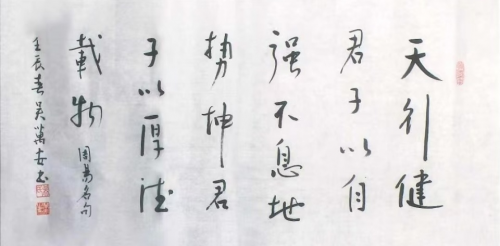 天行健
君子以自
强不息地
势坤君
子以厚德
载物
周易名句
壬辰春吴万安书